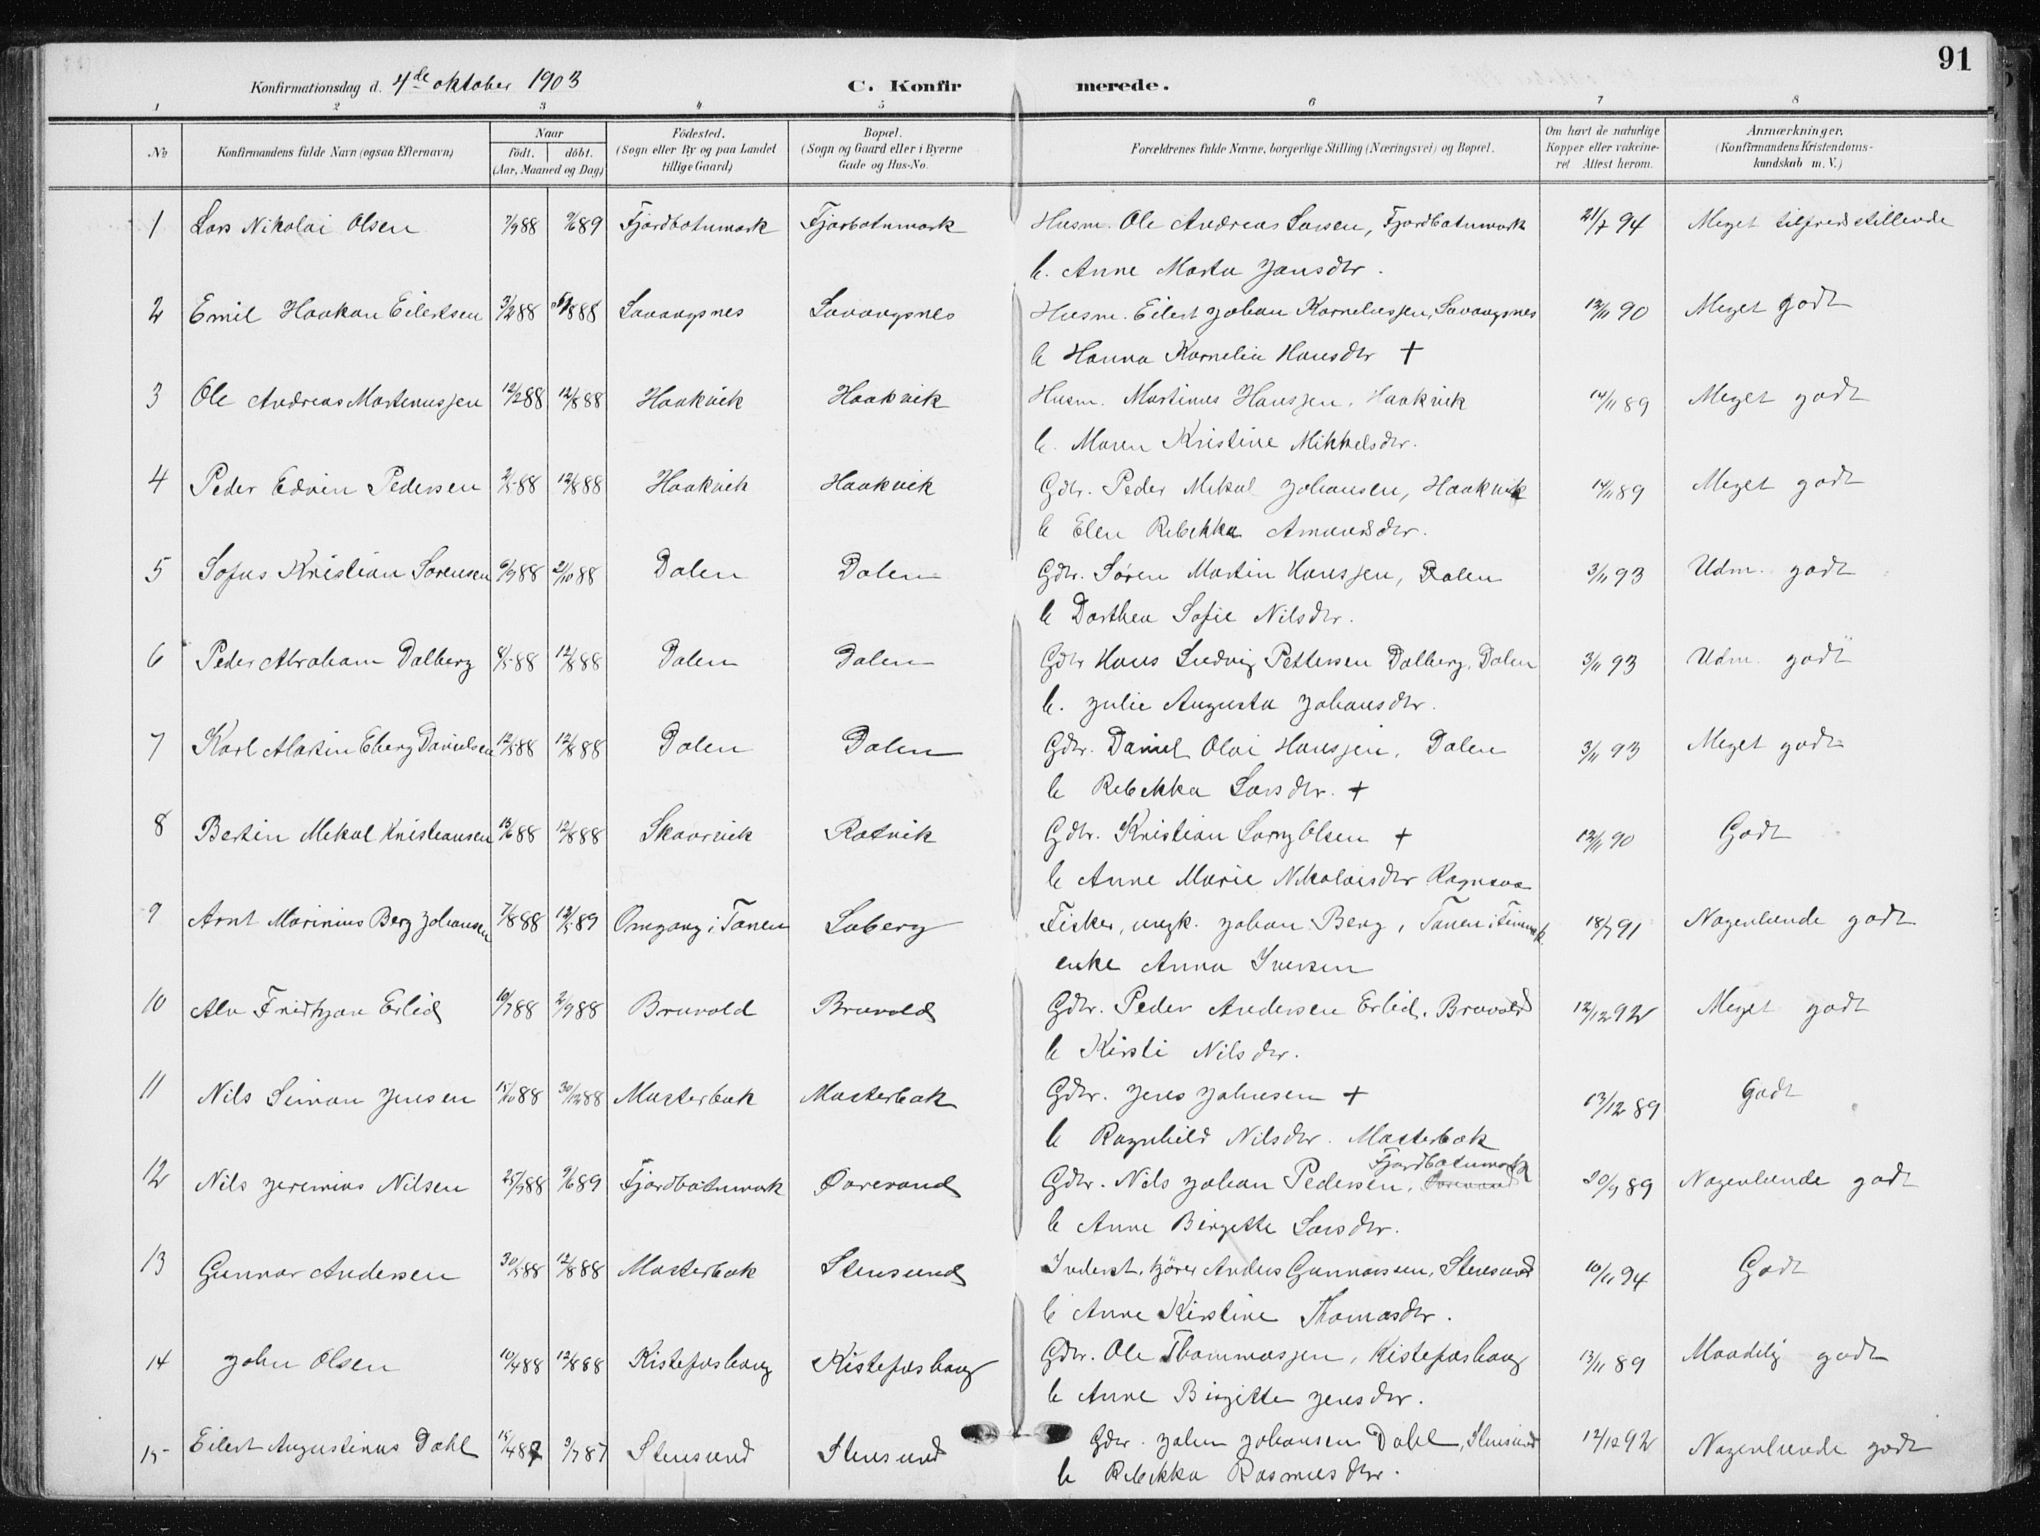 91
Konfirmationsdag d. 4de oktober 1903 C. Konfirmerede.
1 2 3 4 5 6 7 8
No Konfirmandens fulde Navn (ogsaa Efternavn) Naar født. døbt. (Aar, Maaned og Dag) Fødested. (Sogn eller By og paa Landet tillige Gaard) Bopæl. (Sogn og Gaard eller i Byerne Gade og Hus-No. Forældrenes fulde Navne, borgerlige Stilling (Næringsvei) og Bopæl. Om havt de naturlige Kopper eller vakcineret Attest herom. Anmærkninger. (Konfirmandens Kristendomskundskab m. V.)
1 Lars Nikolai Olsen 7/9 88 9/6 89 Fjordbotnmark Fjorbotnmark Husm. Ole Andreas Larsen, Fjordbotnmark 21/7 94 Meget tilfredsstillende
h. Anne Marta Jansdtr.
2 Emil Haakon Eilertsen 3/2 88 88 Lavangsnes Lavangsnes Husm. Eilert Johan Korneliussen, Lavangsnes 13/11 90 Meget godt
h Hanna Kornelia Hansdtr +
3 Ole Andreas Martinussen 12/2 88 12/8 88 Haakvik Haakvik Husm. Martinus Hanssen, Haakvik 14/11 89 Meget godt
h. Maren Kristine Mikkelsdtr.
4 Peder Edvin Pedersen 2/5 88 12/8 88 Haakvik Haakvik Gdbr. Peder Mikal Johansen, Haakvik 14/11 89 Meget godt
h Elen Rebekka Amundsdtr.
5 Sofus Kristian Sørensen 6/9 88 21/10 88 Dalen Dalen Gdbr. Søren Martin Hanssen, Dalen 3/11 93 Udm. godt
h Dorthea Sofie Nilsdtr.
6 Peder Abraham Dalberg 8/5 88 12/8 88 Dalen Dalen Gdbr Hans Ludvig Pettersen Dalberg, Dalen 3/11 93 Udm. godt
h. Julie Augusta Johansdtr.
7 Karl Martin Eberg Danielsen 12/5 88 12/8 88 Dalen Dalen Gdbr. Daniel Olai Hanssen, Dalen 3/11 93 Meget godt
h Rebekka Larsdtr. +
8 Bertin Mikal Kristiansen 13/6 88 12/8 88 Skaarvik Rotvik Gdbr. Kristian Olsen + 13/11 90 Godt
h Anne Marie Nikolaisdtr
9 Arnt Marinius Berg Johansen 7/8 88 12/5 89 Omgang i Tanen Loberg Fisker, ungk. Johan Berg, Tanen i 18/7 91 Nogenlunde godt
enke Anna Iversen
10 Alv Fridtjov Erlid 10/7 88 2/9 88 Bruvold Bruvold Gdbr. Peder Andersen Erlid, Bruvold 12/12 92 Meget godt
h Kirsti Nilsdtr.
11 Nils Simon Jensen 15/10 88 30/12 88 Masterbak Masterbak Gdbr. Jens Johnsen + 13/12 89 Godt
h Ragnhild Nilsdtr. Masterbak
12 Nils Jeremias Nilsen 25/9 88 9/6 89 Fjordbotnmark Øvrevand Gdbr. Nils Johan Pedersen, Fjordbotnmark 20/9 89 Nogenlunde godt
h Anne Birgitte Larsdtr.
13 Gunnar Andersen 30/5 88 12/8 88 Masterbak Stensund Inderst, Anders Gunnarsen, Stensund 10/11 94 Godt
h Anne Kirstine Thomasdtr.
14 John Olsen 10/4 88 12/8 88 Kistefoshaug Kistefoshaug Gdbr. Ole Thommassen, Kistefoshaug 13/11 89 Maadelig godt
h Anne Birgitte Jensdtr.
15 Eilert Augustinus Dahl 15/4 87 9/7 87 Stensund Stensund Gdbr. John Johansen Dahl, Stensund 12/12 92 Nogenlunde godt
h Rebekka Rasmusdtr.